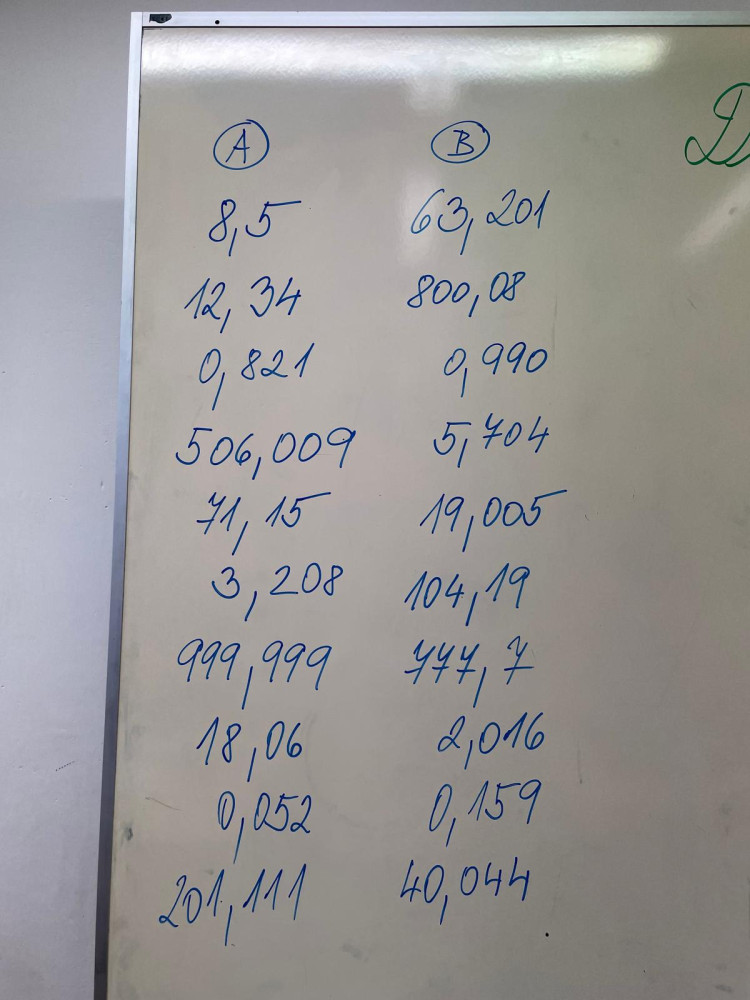 A B
8,5 63,201
12,34 800,08
0,821 0,990
506,009 5,704
71,15 19,005
3,208 104,19
999,999 777,7
18,06 2,016
0,052 0,159
201,111 40,044